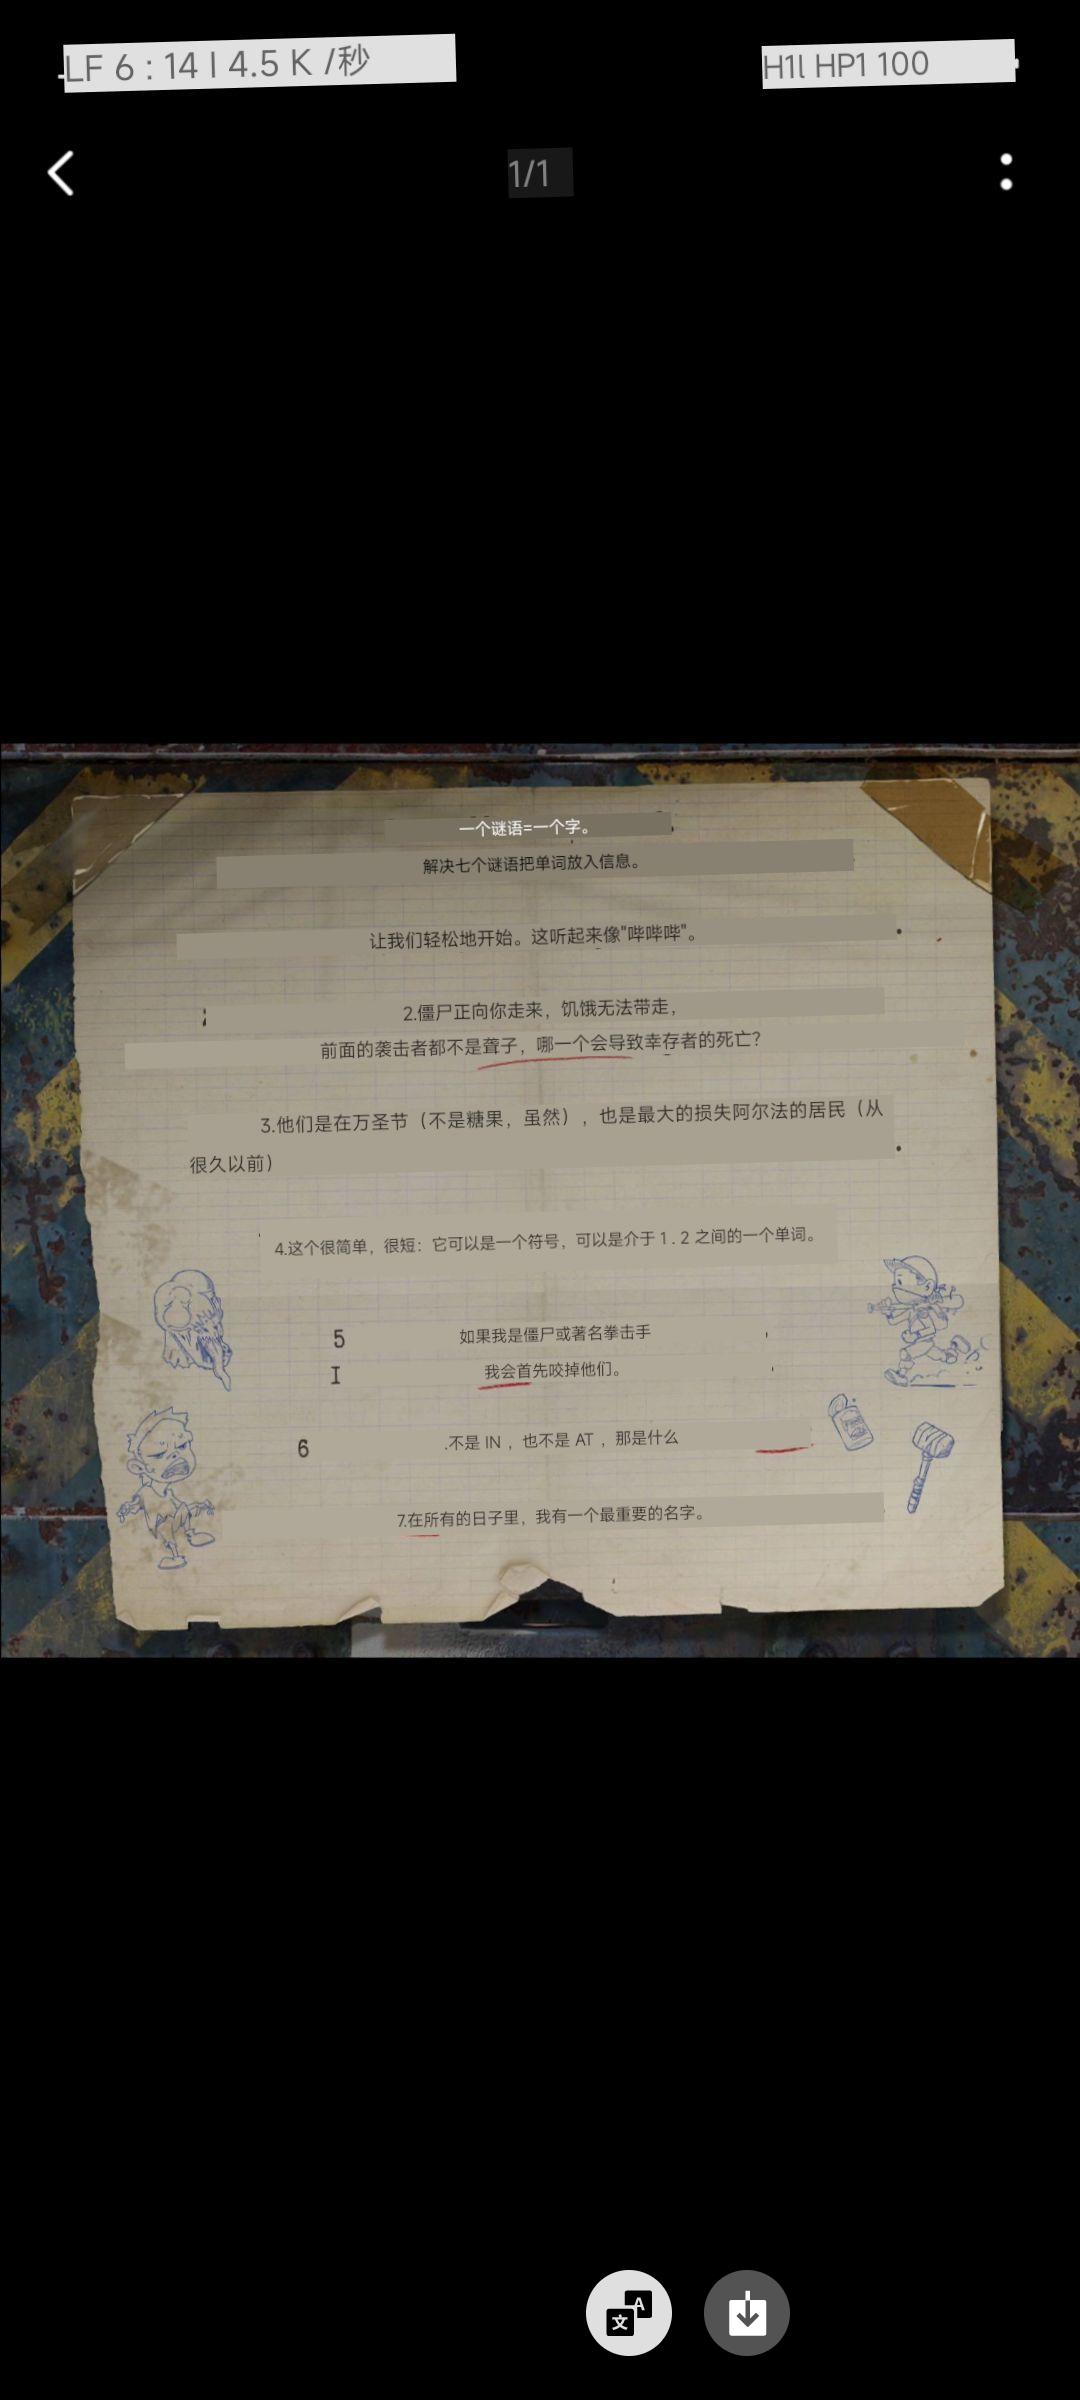 LF 6 : 14 | 4.5 K /秒
H1l HP1 100
1/1
一个谜语=一个字。
解决七个谜语把单词放入信息。
让我们轻松地开始。这听起来像"哔哔哔"。
2.僵尸正向你走来，饥饿无法带走，
前面的袭击者都不是聋子，哪一个会导致幸存者的死亡？
3.他们是在万圣节（不是糖果，虽然），也是最大的损失阿尔法的居民（从
很久以前）
4.这个很简单，很短：它可以是一个符号，可以是介于 1 . 2 之间的一个单词。
5 如果我是僵尸或著名拳击手
I 我会首先咬掉他们。
6 .不是 IN ，也不是 AT ，那是什么
7.在所有的日子里，我有一个最重要的名字。